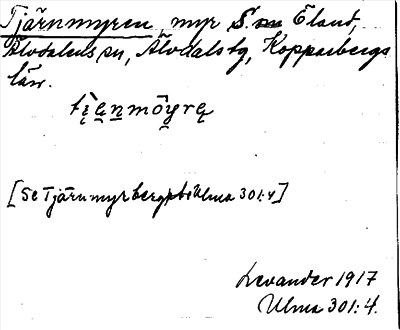 Tjärnmyren, myr S. om Eland,
Älvdalens sn, Älvdals tg, Kopparbergs
län.
[Se Tjärnmyrberget i Ulma 301:4]
Levander 1917
Ulma 301:4.